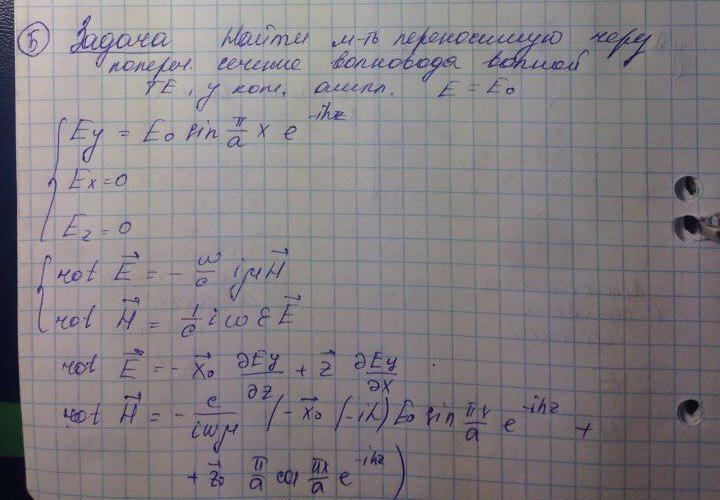 Б Задача Найти м-ть переносимую через
попереч. сечение волновода волной
TE, у кот. ампл. E = E₀
Ey = E₀ sin π/a x e^{-ihz}
Ex = 0
Ez = 0
rot E⃗ = - ω/c iμ H⃗
rot H⃗ = 1/c iωε E⃗
rot E⃗ = - x⃗₀ ∂Ey/∂z + z⃗ ∂Ey/∂x
rot H⃗ = - c/iωμ (- x⃗₀ (-ih) E₀ sin πx/a e^{-ihz} +
+ z⃗₀ π/a cos πx/a e^{-ihz})